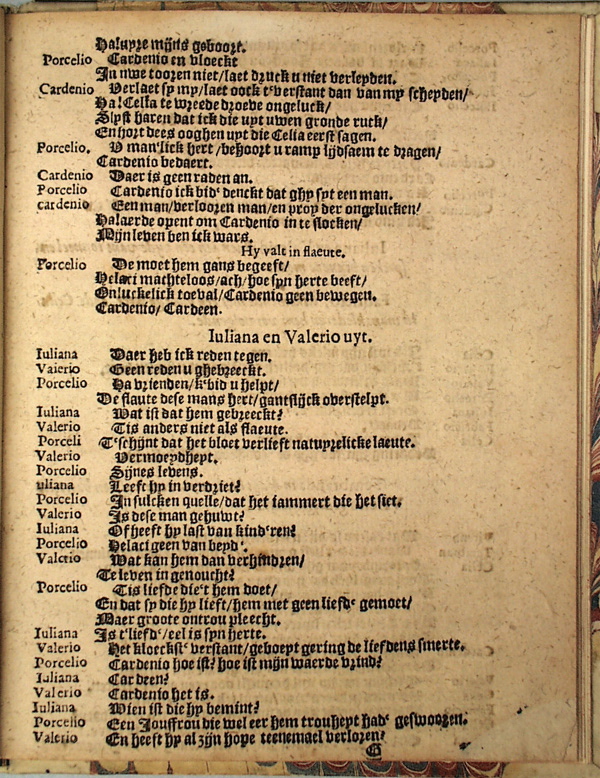 Haluyre mijns geboort.
Porcelio Cardenio en vloeckt
In uwe tooren niet/laet druck u niet verleyden.
Cardenio Verlaet sy my/laet oock t'verstant dan van my scheyden/
Ha! Cella te wreede droeve ongeluck/
Slyst haren dat ick die uyt uwen gronde ruck/
En hort dees ooghen uyt die Celia eerst sagen.
Porcelio. U man'lick hert/behoort u ramp lijdsaem te dragen/
Cardenio bedaert.
Cardenio Daer is geen raden an.
Porcelio Cardenio ick bid' denckt dat ghy syt een man.
cardenio Een man/verlooren man/en proy der ongelucken!
Hal aerde opent om Cardenio in te slocken/
Mijn leven ben ick wars.
Hy valt in flaeute.
Porcelio De moet hem gans begeeft/
Helaci machteloos/ach/hoe syn herte beeft/
Onluckelick toeval/Cardenio geen bewegen.
Cardenio/Cardeen.
Iuliana en Valerio uyt.
Iuliana Daer heb ick reden tegen.
Vaierio Geen reden u ghebreeckt.
Porcelio Ha vrienden/k'bid u helpt/
De flaute dese mans hert/gantslijck overstelpt.
Iuliana Wat ist dat hem gebreeckt?
Valerio Tis anders niet als flaeute.
Porceli T'schijnt dat het bloet verlieft natuyrelicke laeute.
Valerio Vermoeydheyt.
Porcelio Sijnes levens.
uliana Leeft hy in verdriet?
Porcelio In sulcken quelle/dat het iammert die het siet.
Valerio Is dese man gehuwt?
Iuliana Of heeft hy last van kind'ren?
Porcelio Helaci geen van beyd'.
Valerio Wat kan hem dan verhindren/
Te leven in genoucht?
Porcelio Tis liefde die't hem doet/
En dat sy die hy lieft/hem met geen liefd' gemoet/
Maer groote ontrou pleecht.
Iuliana Is t'liefd'/eel is syn herte.
Valerio Het kloeckst' verstant/geboeyt gering de liefdens smerte.
Porcelio Cardenio hoe ist? hoe ist mijn waerde vrind?
Iuliana Cardeen?
Valerio Cardenio het is.
Iuliana Wien ist die hy bemint?
Porcelio Een Jouffrou die wel eer hem trouheyt had' geswooren.
Valerio En heeft hy al zijn hope teenemael verloren?
G